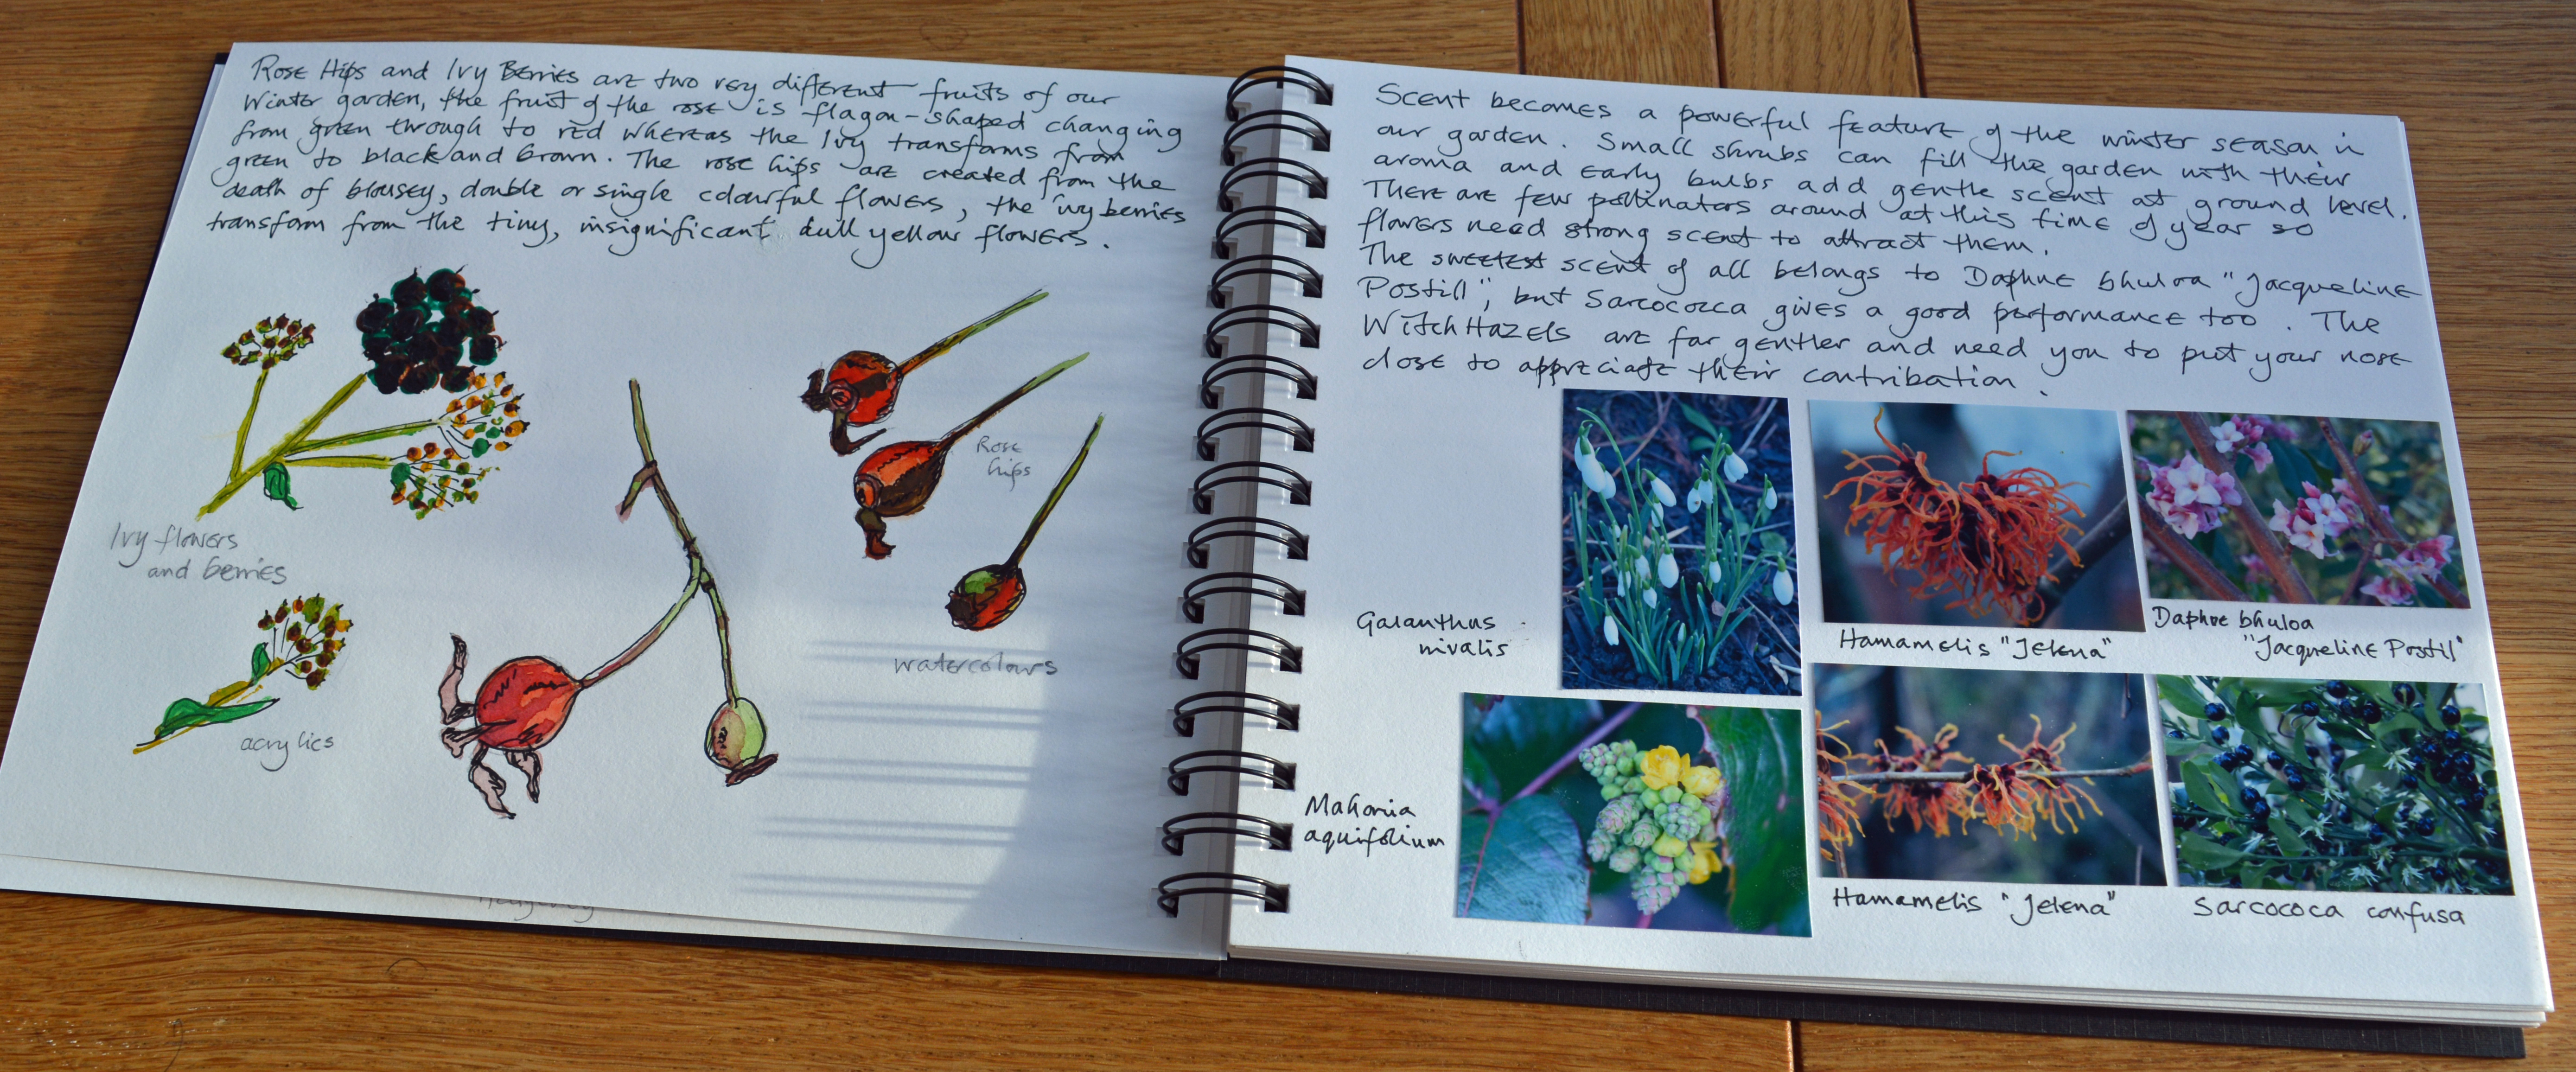 Rose Hips and Ivy Berries are two very different fruits of our
Winter garden, the fruit of the rose is flagon-shaped changing
from green through to red whereas the Ivy transforms from
green to black and brown. The rose hips are created from the
death of blousey, double or single colourful flowers, the ivy berries
transform from the tiny, insignificant dull yellow flowers.
Rose
hips
Ivy flowers
and berries
watercolours
acrylics
Scent becomes a powerful feature of the winter season in
our garden. Small shrubs can fill the garden with their
aroma and early bulbs add gentle scent at ground level.
There are few pollinators around at this time of year so
flowers need strong scent to attract them.
The sweetest scent of all belongs to Daphne bhuloa "Jacqueline
Postill", but Sarcococca gives a good performance too. The
Witch Hazels are far gentler and need you to put your nose
close to appreciate their contribution.
Galanthus
nivalis
Hamamelis "Jelena"
Daphne bhuloa
"Jacqueline Postil"
Mahonia
aquifolium
Hamamelis "Jelena"
Sarcococa confusa